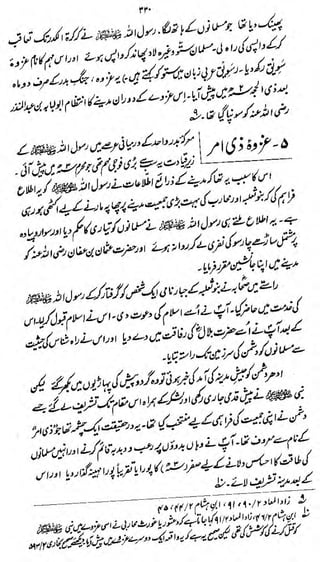 ۳۳۰
پھینک دیا تھا جو مسلمانوں کے ہاتھ لگا۔ رسول اللہ ﷺ نے کرکرۃ الکدر تک تعاقب
کرکے واپسی کی راہ لی۔ مسلمان ستو وغیرہ لاد پھاند کر واپس ہوئے اور اس مہم کا نام غزوۂ
سویق رکھ دیا۔ (سویق عربی زبان میں ستو کو کہتے ہیں) یہ غزوہ، جنگ بدر کے صرف دو ماہ
بعد ذی الحجہ ۲ھ میں پیش آیا۔ اس غزوے کے دوران مدینے کا انتظام ابولبابہ بن عبدالمنذر
رضی اللہ عنہ کو سونپا گیا تھا۔
۵ - غزوۂ ذی امر
معرکہ بدر واحد کے درمیانی عرصے میں رسول اللہ ﷺ کے
زیر قیادت یہ سب سے بڑی فوجی مہم تھی جو محرم ۳ھ میں پیش آئی۔
اس کا سبب یہ تھا کہ مدینے کے ذرائع اطلاعات نے رسول اللہ ﷺ کو یہ اطلاع
فراہم کی کہ بنو ثعلبہ اور محارب کی بہت بڑی جمعیت مدینے پر چھاپہ مارنے کے لیے اکٹھی ہو رہی
ہے۔ یہ اطلاع ملتے ہی رسول اللہ ﷺ نے مسلمانوں کو تیاری کا حکم دیا اور سوار و پیادہ
پر مشتمل ساڑھے چار سو کی نفری لے کر روانہ ہوئے اور حضرت عثمان بن عفان رضی اللہ عنہ کو
مدینے میں اپنا جانشین مقرر فرمایا۔
راستے میں صحابہ نے بنو ثعلبہ کے جبار نامی ایک شخص کو گرفتار کرکے رسول اللہ ﷺ
کی خدمت میں حاضر کیا۔ آپ نے اسے اسلام کی دعوت دی۔ اس نے اسلام قبول کر لیا۔ اس
کے بعد آپ نے اسے حضرت بلالؓ کی رفاقت میں دے دیا اور اس نے راہ شناس کی حیثیت
سے مسلمانوں کو دشمن کی سرزمین تک راستہ بتایا۔
ادھر دشمن کو جیش مدینہ کی آمد کی خبر ہوئی تو وہ گردوپیش کی پہاڑیوں میں بکھر گئے لیکن
نبی ﷺ نے پیش قدمی جاری رکھی اور لشکر کے ہمراہ اس مقام تک تشریف لے گئے جسے
دشمن نے اپنی جمعیت کی فراہمی کے لیے منتخب کیا تھا۔ یہ درحقیقت ایک چشمہ تھا جو ذی امر
کے نام سے معروف تھا۔ آپ نے وہاں بدوؤں پر رعب و دبدبہ قائم کرنے اور انہیں مسلمانوں
کی طاقت کا احساس دلانے کے لیے صفر (۳ھ) کا پورا یا تقریباً پورا مہینہ گذار دیا اور اس
کے بعد مدینہ تشریف لائے۔
زاد المعاد ۲/۹۰، ۹۱، ابن ہشام ۲/۴۴، ۴۵
ابن ہشام ۲/۴۶، زاد المعاد ۲/۹۱ کہا جاتا ہے کہ دعثور یا غورث محاربی نے اسی غزوے میں نبی ﷺ
کو قتل کرنے کی کوشش کی تھی لیکن صحیح یہ ہے کہ یہ واقعہ ایک دوسرے غزوے میں پیش آیا۔ دیکھئے صحیح بخاری ۲/۵۹۳